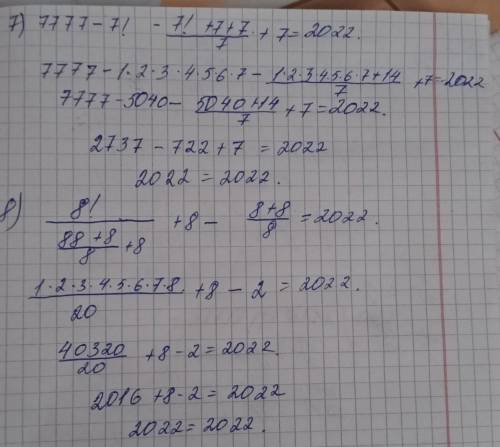 7) 7777 - 7! - (7! + 7 + 7)/7 + 7 = 2022.
7777 - 1·2·3·4·5·6·7 - (1·2·3·4·5·6·7+14)/7 + 7 = 2022
7777 - 5040 - (5040+14)/7 + 7 = 2022.
2737 - 722 + 7 = 2022
2022 = 2022.
8) 8!/((88+8)/8 + 8) + 8 - (8+8)/8 = 2022.
(1·2·3·4·5·6·7·8)/20 + 8 - 2 = 2022.
40320/20 + 8 - 2 = 2022.
2016 + 8 - 2 = 2022
2022 = 2022.